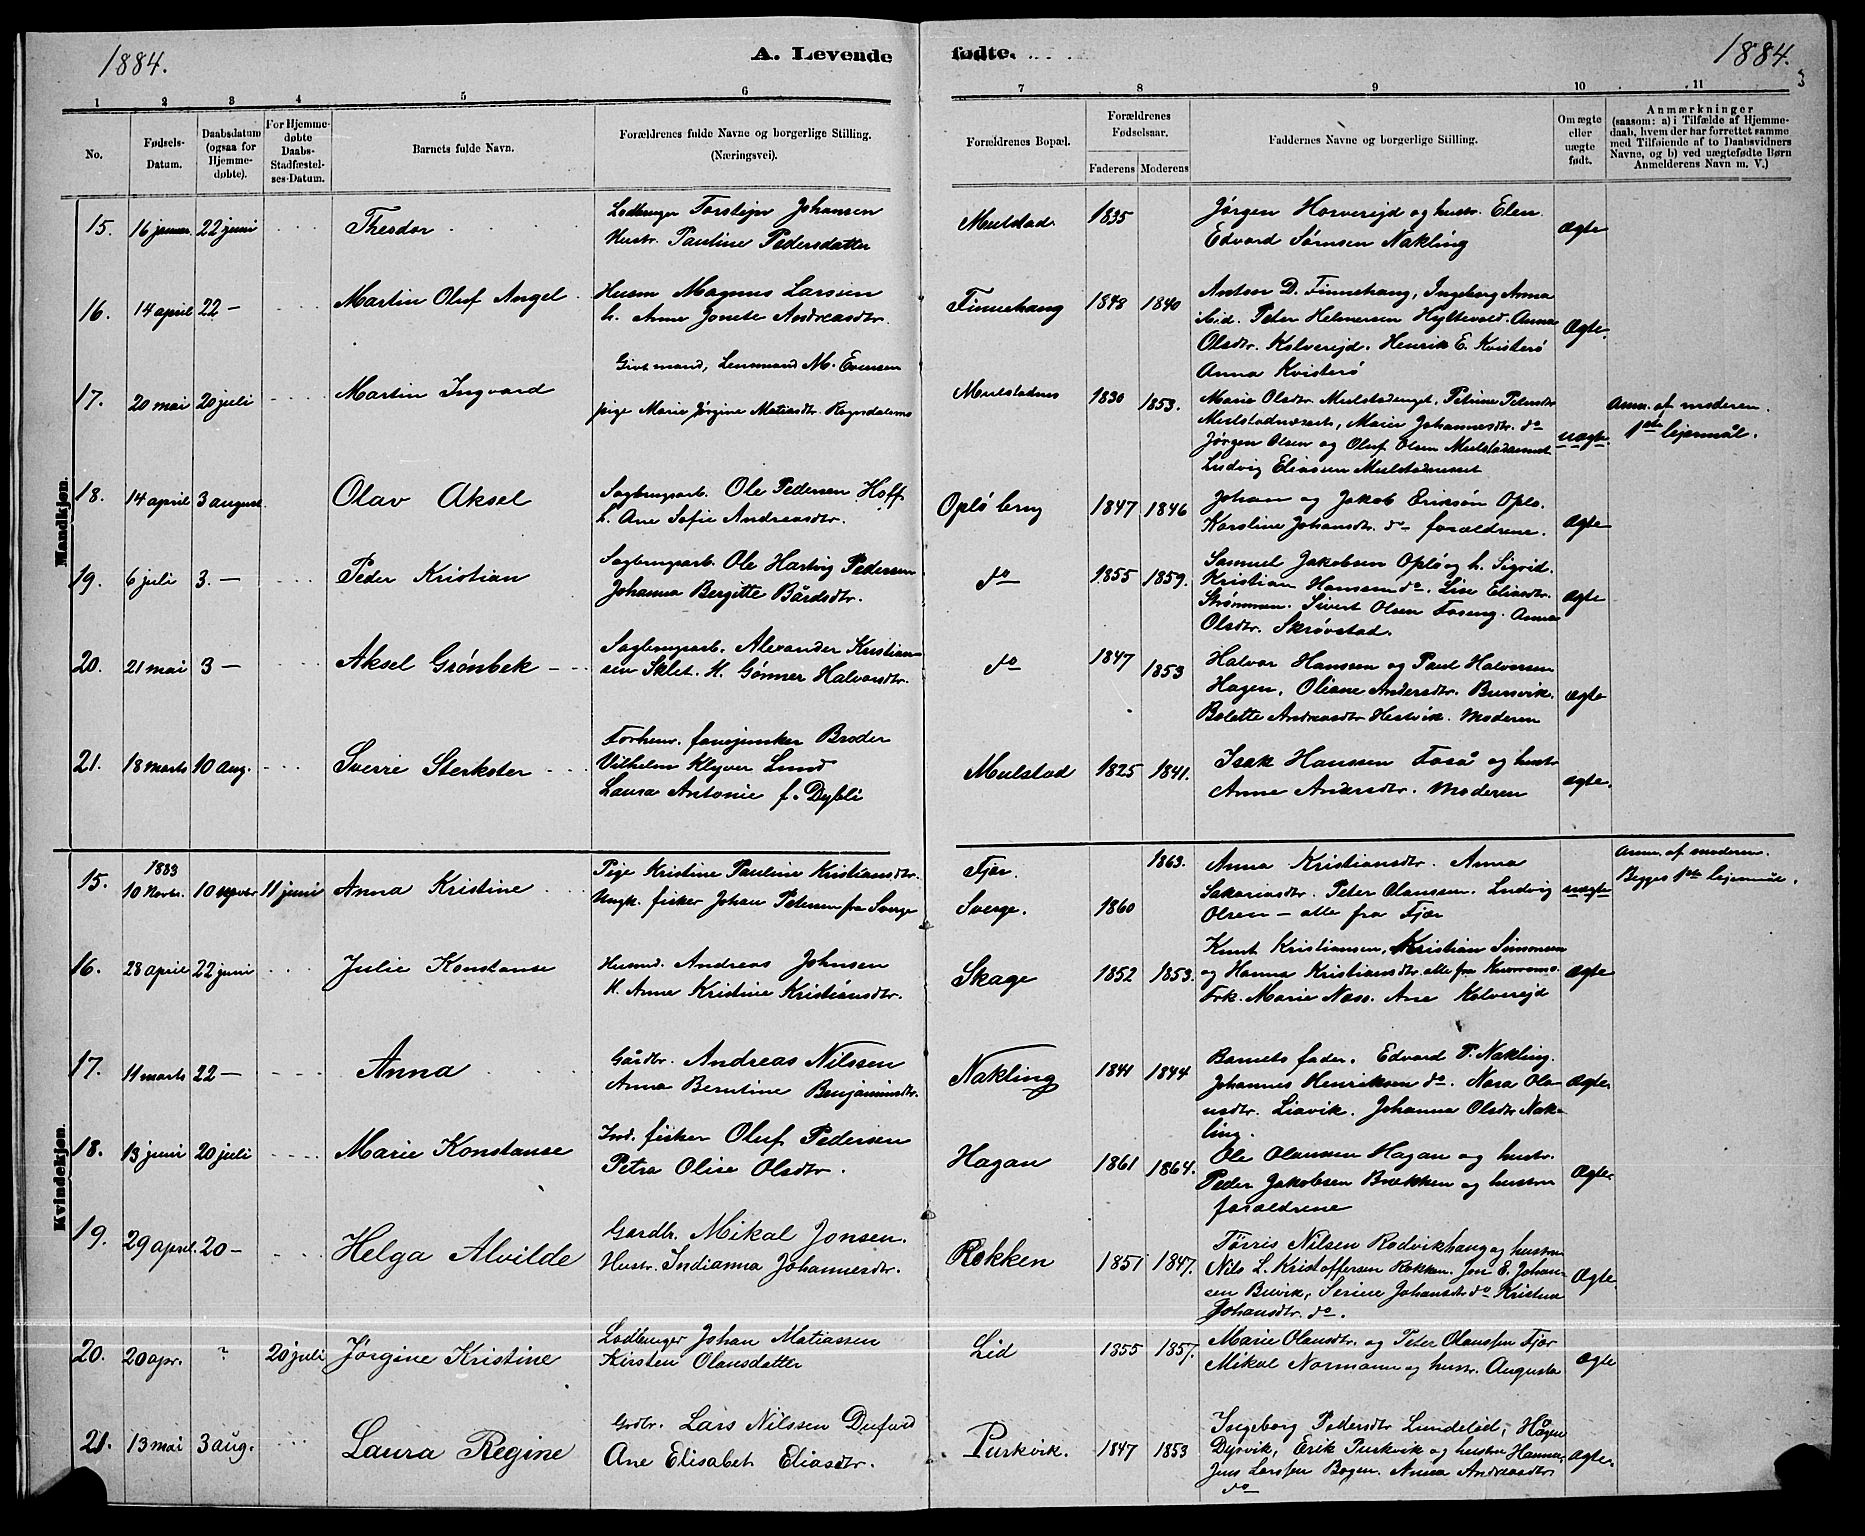 1884.
A. Levende fødte.
1884.
3
1 2 3 4 5 6 7 8 9 10 11
No.
Fødsels-Datum.
Daabsdatum (ogsaa for Hjemmedøbte).
For Hjemmedøbte Daabs-Stadfæstelses-Datum.
Barnets fulde Navn.
Forældrenes fulde Navne og borgerlige Stilling. (Næringsvei).
Forældrenes Bopæl.
Forældrenes Fødselsaar.
Faderens Moderens
Faddernes Navne og borgerlige Stilling.
Om ægte eller uægte født.
Anmærkninger (saasom: a) i Tilfælde af Hjemmedaab, hvem der har forrettet samme med Tilføiende af to Daabsvidners Navne, og b) ved uægtefødte Børn Anmelderens Navn m. V.)
Mandkjøn.
15. 16 januar 22 juni Theodor
Torstejn Johansen
Hustr. Pauline Pedersdatter
Mulstad. 1835
Jørgen Horverejd og hustr. Elen.
Edvard Sørnsen Nakling
Ægte
16. 14 april 22 — Martin Oluf Angel
Husm Magnus Larsen
h. Anne Jonette Andreasdtr.
Finnehang 1848 1840
Anton D. Finnehang, Ingeborg Anna
ibid. Peter Helmersen Anna
Olsdtr. Kolverejd. Henrik E. Kvisterø
Anna Kvisterø
Ægte.
17. 20 mai 20 juli Martin Ingvard
Givt mand, Lensmand M. Evensen
pige Marie Jørgine Matiasdtr.
Mulstadnes 1830 1853.
Marie Olsdtr. Petrine Petersdtr
Marie Johannesdtr. do
Jørgen Olsen og Oluf Olsen
Ludvig Eliassen
uægte
Anm. af moderen.
1ste lejermål.
18. 14 april 3 august Olav Aksel
Sagbrugarb. Ole Pedersen Hoff
h. Ane Sofie Andreasdtr.
Opløbrug 1847 1846
Johan og Jakob Eriksøn Oplø.
Karoline Johansdtr. do forældrene.
Ægte
19. 6 juli 3. — Peder Kristian
Sagbrugarb. Ole Hartvig Pedersen
Johanna Bergitte Bårdsdtr.
do 1855 1859.
Samuel Jakobsen Oplø og h. Sigrid.
Kristian Hansen do. Lise Eliasdtr.
Strømmen. Sivert Olsen Foseng. Anna
Olsdtr. Skrøvstad.
ægte
20. 21 mai 3 — Aksel Grønbek
Sagbrugarb. Alexander Kristian-
sen Sklet. H. Gønner Halvorsdtr.
do 1847 1853
Halvor Hanssen og Paul Halvorsen
Hagen. Oliane Andersdtr. Bunsvik.
Bolette Andreasdtr Hestvik. Moderen
ægte
21. 18 marts 10 aug. Sverre Sterkoter
Forhenv. fanejunker Broder
Vilhelm Klyver Lund
Laura Antonie f. Dybli
Mulstad 1825 1841.
Isak Hanssen Foså og hustr
Anne Andersdtr. Moderen
ægte.
Kvindekjøn.
15. 1883 10 Novbr. 10 novbr 11 juni Anna Kristine
Pige Kristine Pauline Kristiansdtr.
Ungk. fisker Johan Petersen fra Sverge
Fjær. 1863.
Sverge. 1860
Anna Kristiansdtr. Anna
Sakariasdtr. Peter Olanssen. Ludvig
Olsen — alle fra Fjær
uægte
Anm. af moderen.
Begges 1ste lejermål.
16. 28 april 22 juni Julie Konstanse
Husmd. Andreas Johnsen
H. Anne Kristine Kristiansdtr.
Skage 1852 1853.
Knut Kristiansen, Kristian Simonsen
og Hanna Kristiansdtr. alle fra
Frk. Marie Næss. Ane Kolverejd
Ægte
17. 11 marts 22 — Anna
Gårdbr. Andreas Nilssen
Anna Berntine Benjaminsdtr.
Nakling 1841 1844
Barnets fader. Edvard P. Nakling.
Johannes Henriksen do. Nora Ola-
nsdtr. Liavik. Johanna Olsdtr Nak-
ling.
Ægte.
18. 13 juni 20 juli Marie Konstanse
Ind. fisker Oluf Pedersen
Petra Olise Olsdtr.
Hagan 1861 1864.
Ole Olaussen Hagan og hustr.
Peder Jakobsen Brækken og hustru
forældrene
Ægte
19. 29 april. 20 — Helga Alvilde
Gardb. Mikal Jonsen.
Hustr. Indianna Johannesdtr.
Rokken 1851 1847.
Tørris Nilsen Rødvikhaug og hustru
Nils L. Kristoffersen Rokken. Jon E. Johan-
sen Buvik, Serine Johansdtr do Kristine
Johansdtr. do.
Ægte
20. 20 apr. ? 20 juli Jørgine Kristine
Johan Matiassen
Kirsten Olausdatter
Lid 1855 1857.
Marie Olausdtr. og Peter Olaussen Fjær
Mikal Normann og hustr. Augusta
ægte
21. 13 mai 3 aug. Laura Regine
Grdbr. Lars Nilssen
Ane Elisabet Eliasdtr.
Purkvik. 1847 1853
Ingeborg Pedersdtr Hågen
Dysvik, Erik Purkvik og hustru Hanna,
Jens Larssen Bogen. Anna Andreasdtr
do
Ægte.